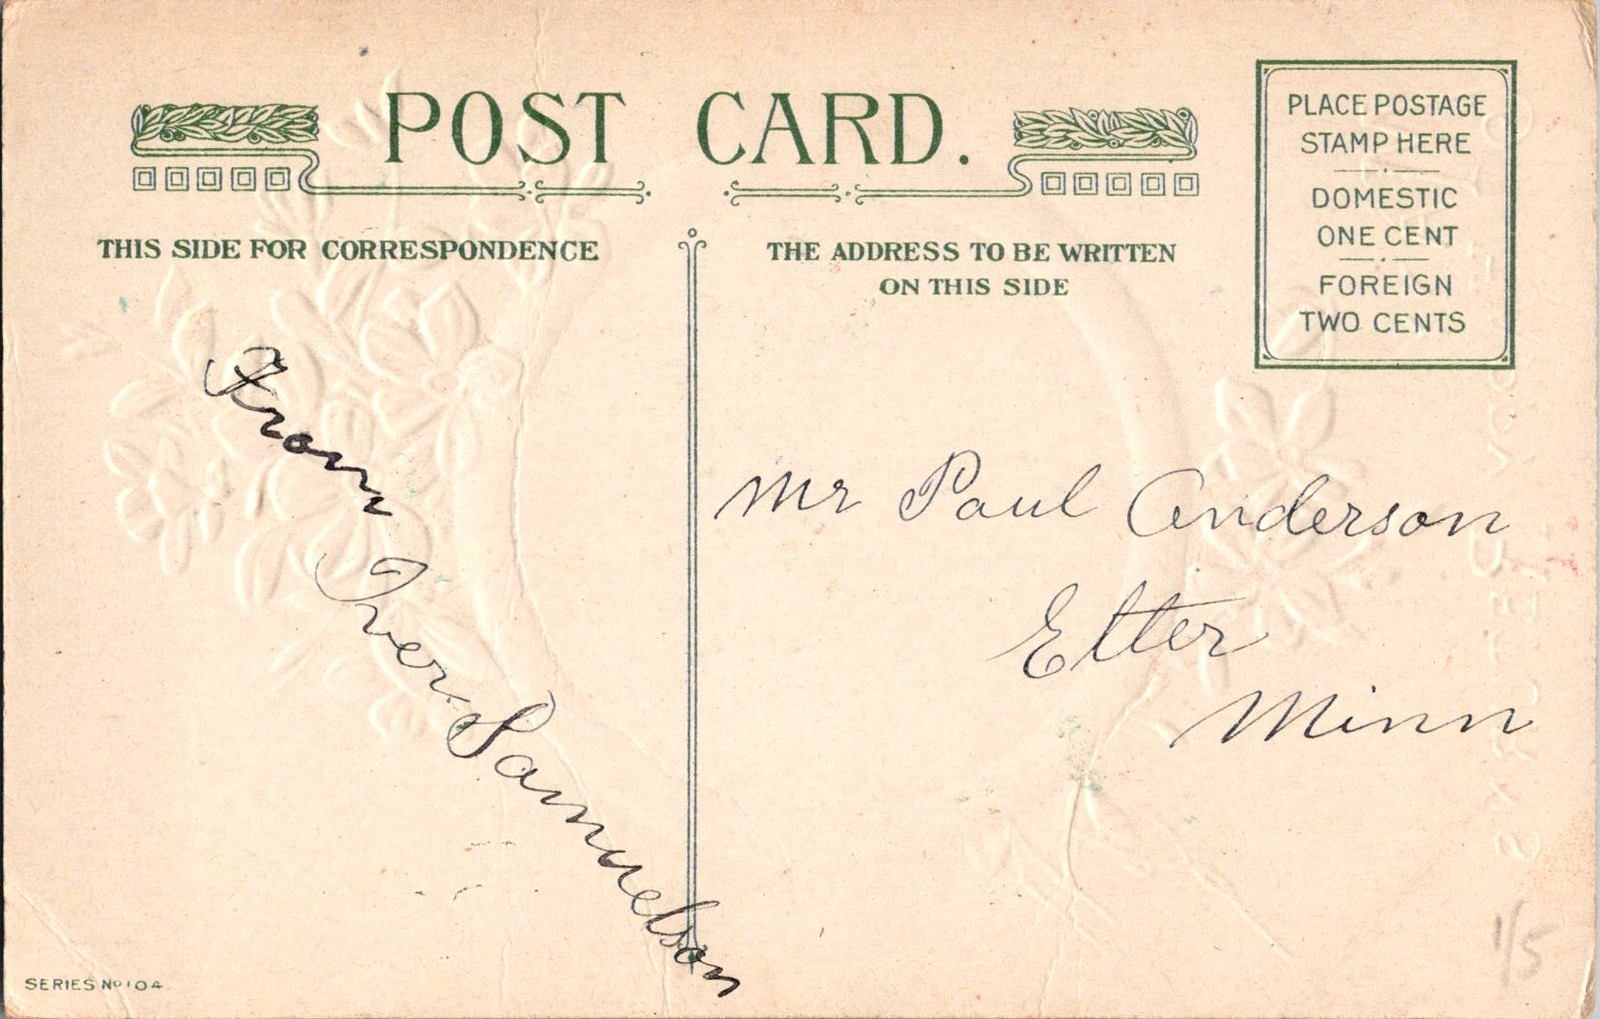 POST CARD.
PLACE POSTAGE
STAMP HERE
DOMESTIC
ONE CENT
FOREIGN
TWO CENTS
THIS SIDE FOR CORRESPONDENCE
THE ADDRESS TO BE WRITTEN
ON THIS SIDE
From Iver Samuelson
Mr Paul Anderson
Etter
Minn
SERIES No 104
1/5